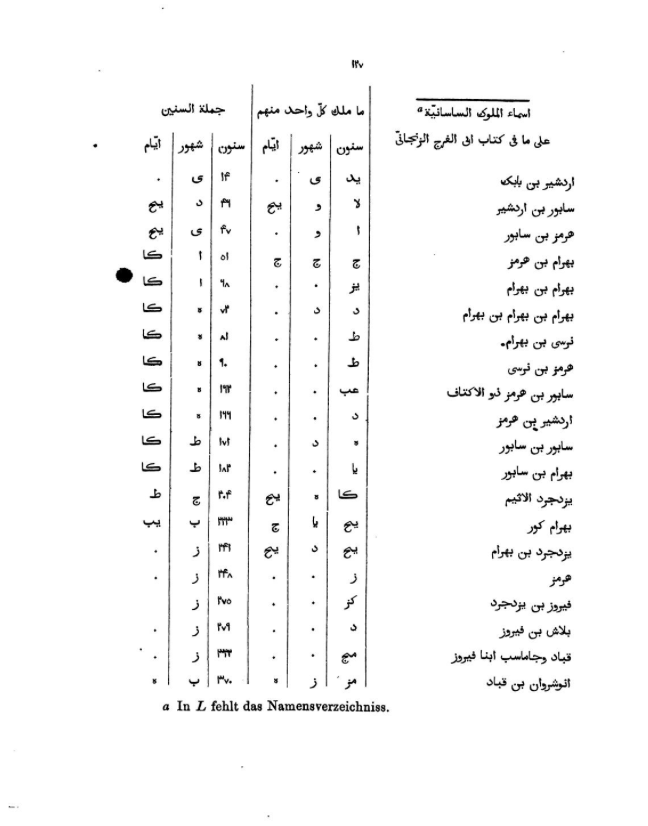 ١٢٧
اسماء الملوك الساسانيّة a
على ما فى كتاب ابى الفرج الزنجانّى
ما ملك كلّ واحد منهم | جملة السنين
سنون | شهور | ايّام | سنون | شهور | ايّام
اردشير بن بابك | يد | ى | . | ١۴ | ى | .
سابور بن اردشير | لا | و | يح | ۴٦ | د | يح
هرمز بن سابور | ا | و | . | ۴٧ | ى | يح
بهرام بن هرمز | ج | ج | ج | ٥١ | ا | كا
بهرام بن بهرام | يز | . | . | ٦٨ | ا | كا
بهرام بن بهرام بن بهرام | د | د | . | ٧٢ | ه | كا
نرسى بن بهرام. | ط | . | . | ٨١ | ه | كا
هرمز بن نرسى | ط | . | . | ٩٠ | ه | كا
سابور بن هرمز ذو الاكتاف | عب | . | . | ١٦٢ | ه | كا
اردشير بن هرمز | د | . | . | ١٦٦ | ه | كا
سابور بن سابور | ه | د | . | ١٧١ | ط | كا
بهرام بن سابور | يا | . | . | ١٨٢ | ط | كا
يزدجرد الاثيم | كا | ه | يح | ٢٠۴ | ج | ط
بهرام كور | يح | يا | ج | ٢٢٣ | ب | يب
يزدجرد بن بهرام | يح | د | يح | ٢۴١ | ز | .
هرمز | ز | . | . | ٢۴٨ | ز | .
فيروز بن يزدجرد | كز | . | . | ٢٧٥ | ز
بلاش بن فيروز | د | . | . | ٢٧٩ | ز | .
قباد وجاماسب ابنا فيروز | مج | . | . | ٣٢٢ | ز | .
انوشروان بن قباد | مز | ز | ه | ٣٧٠ | ب | ه
a In L fehlt das Namensverzeichniss.